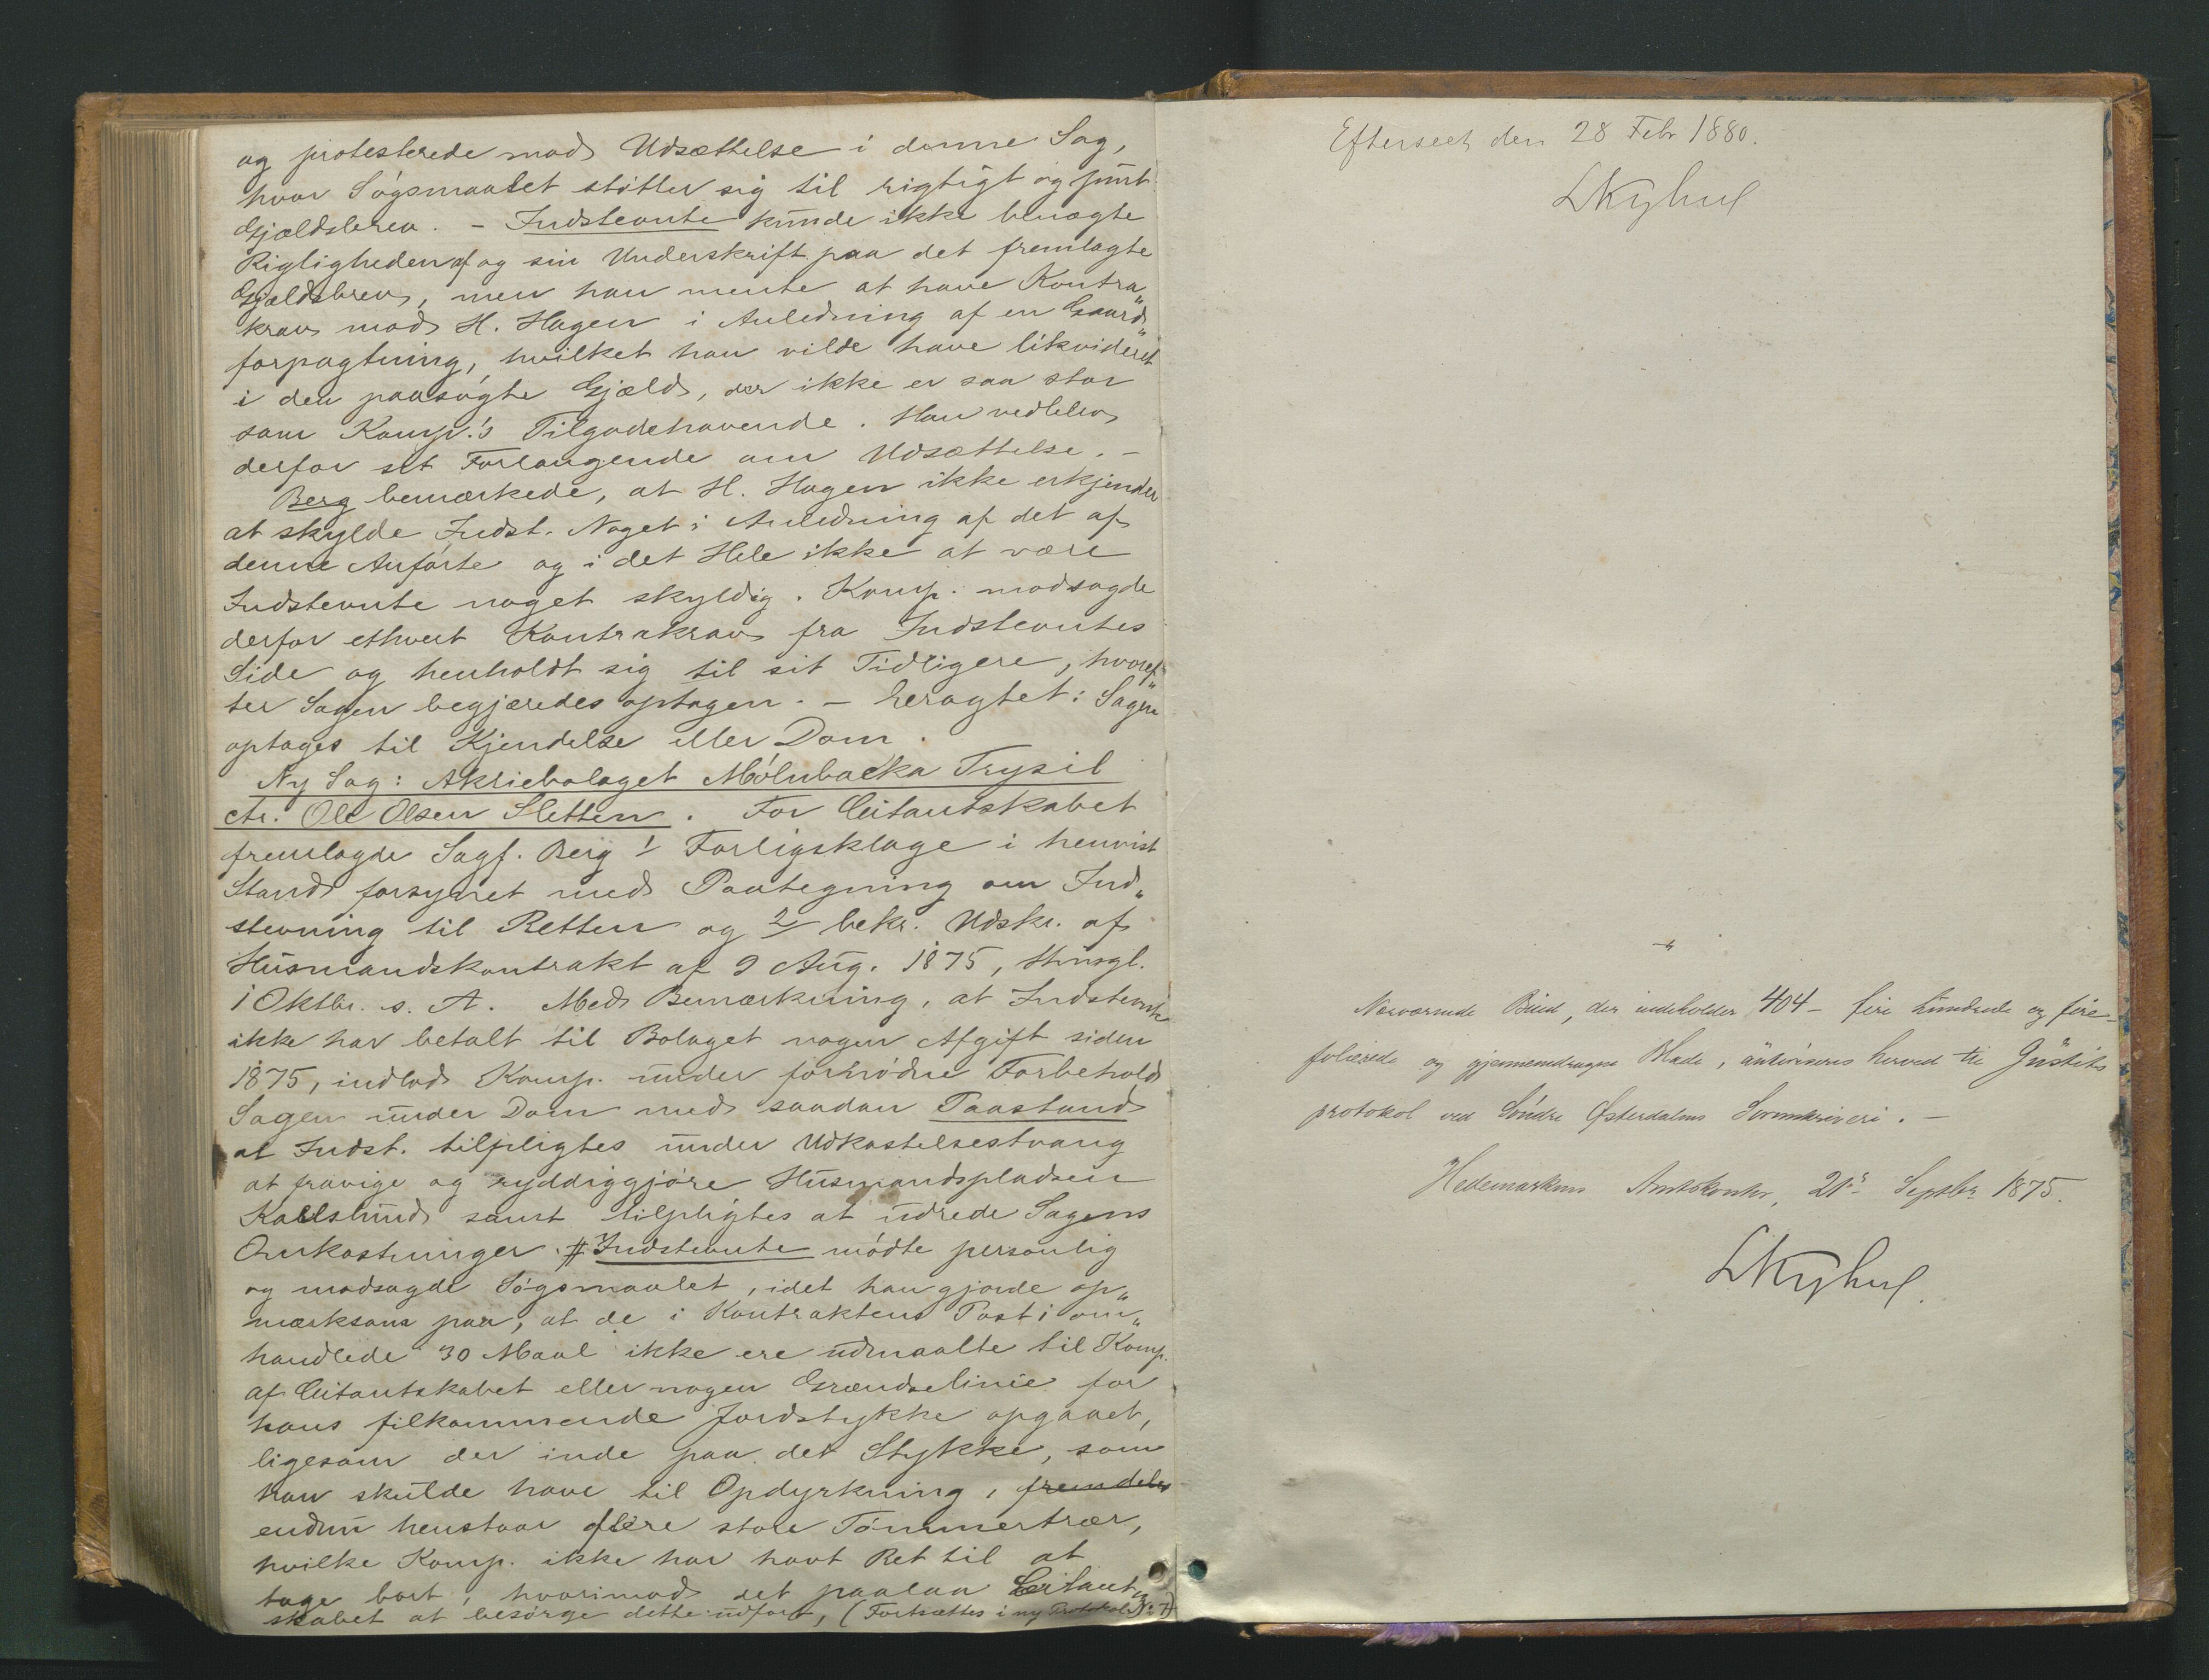 og protesterede mod Udsættelse i denne Sag,
hvor Søgsmaalet støtter sig til rigtigt og
Gjældsbrev. – Indstevnte kunde ikke benægte
Rigtigheden af og sin Underskrift paa det fremlagte
Gjældsbrev, men han mente at have Kontra„
krav mod H. Hagen i Anledning af en Gaard„
forpagtning, hvilket han vilde have likvideret
i den paasøgte Gjæld, der ikke er saa stor
som Komp.'s Tilgodehavende. Han vedblev
derfor sit Forlangende om Udsættelse. –
Berg bemærkede, at H. Hagen ikke erkjender
at skylde Indst. Noget i Anledning af det af
denne Anførte og i det Hele ikke at være
Indstevnte noget skyldig. Komp. modsagde
derfor ethvert Kontrakrav fra Indstevntes
Side og henholdt sig til sit Tidligere, hvoref„
ter Sagen begjæredes optagen. – Eragtet: Sagen
optages til Kjendelse eller Dom.
Ny Sag: Aktiebolaget Mölnbacka Trysil
ctr. Ole Olsen Sletten. For Citantskabet
fremlagde Sagf. Berg 1/ Forligsklage i henvist
Stand forsynet med Paategning om Ind„
stevning til Retten og 2/ bekr. Udskr. af
Husmandskontrakt af 9 Aug. 1875, thingl.
i Oktbr. s. A. Med Bemærkning, at Indstevnte
ikke har betalt til Bolaget nogen Afgift siden
1875, indlod Komp. under fornødne Forbehold
Sagen under Dom med saadan Paastand
at Indst. tilpligtes under Udkastelsestvang
at fravige og ryddiggjøre Husmandspladsen
Kallslund samt tilpligtes at udrede Sagens
Omkostninger. # Indstevnte mødte personlig
og modsagde Søgsmaalet, idet han gjorde op„
mærksom paa, at de i Kontraktens Post 1 om„
handlede 30 Maal ikke ere udmaalte til Komp.
af Citantskabet eller nogen Grændselinie for
hans tilkommende Jordstykke opgaaet,
ligesom der inde paa det Stykke, som
han skulde have til Opdyrkning, fremdeles
endnu henstaar flere store Tømmertrær,
hvilke Komp. ikke har havt Ret til at
tage bort, hvorimod det paalaa Citant„
skabet at besørge dette udført, (Fortsættes i ny Protokol No 7)
Efterseet den 28 Febr 1880.
Nærværende Bind, der indeholder 404 – fire hundrede og fire –
folierede og gjennemdragne Blade, autoriseres herved til Justits
protokol ved Søndre Østerdalens Sorenskriveri. –
Hedemarkens Amtskontor, 21de Septbr 1875.